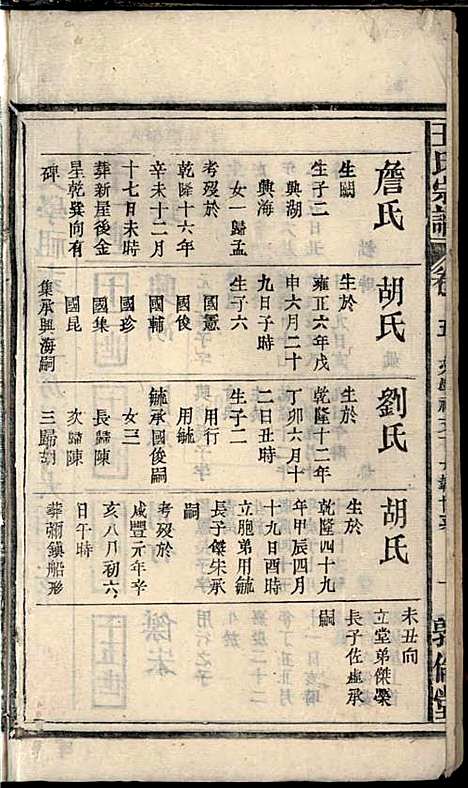 王氏宗譜
卷十五
敦倫堂
詹氏
生闕
生子二
興湖
興海
女一歸孟
考歿於
乾隆十六年
辛未十二月
十七日未時
葬新屋後金
星乾巽向有
碑
胡氏
生於
雍正六年戊
申六月二十
九日子時
生子六
國憲
國俊
國輔
國珍
國集
國昆
集承興海嗣
劉氏
生於
乾隆十二年
丁卯六月十
二日丑時
生子二
用行
用毓
毓承國俊嗣
女三
長歸陳
次歸陳
三歸胡
胡氏
生於
乾隆四十九
年甲辰四月
十九日酉時
立胞弟用毓
長子傑朱承
嗣
考歿於
咸豐元年辛
亥八月初六
日午時
葬彌鎮船形
未丑向
立堂弟傑榮
長子佐承
嗣